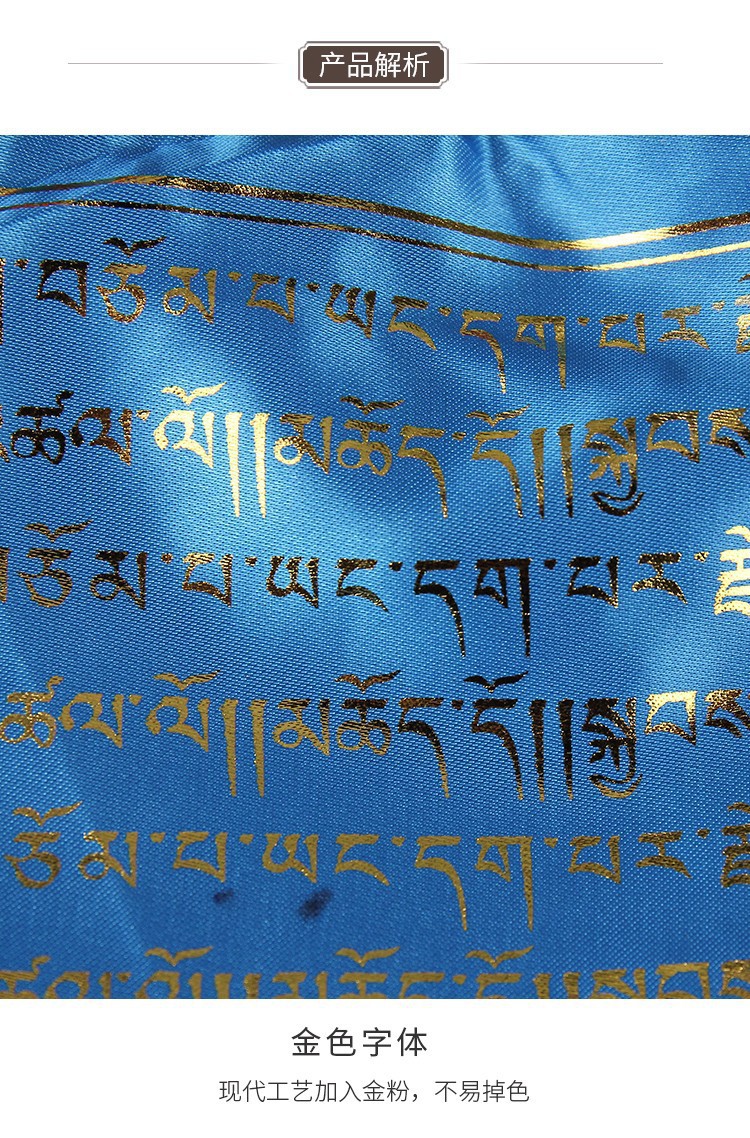 产品解析
བཅོམ་པ་ཡང་དག་པར་
ཚལ་ལོ།།མཆོད་དོ།།སྐྱབས
ཅོམ་པ་ཡང་དག་པར་
ཚལ་ལོ།།མཆོད་དོ།།སྐྱབས
ཅོམ་པ་ཡང་དག་པར་
金色字体
现代工艺加入金粉，不易掉色